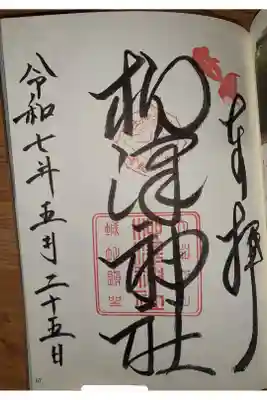 奉拝
柳澤神社
令和七年五月二十五日